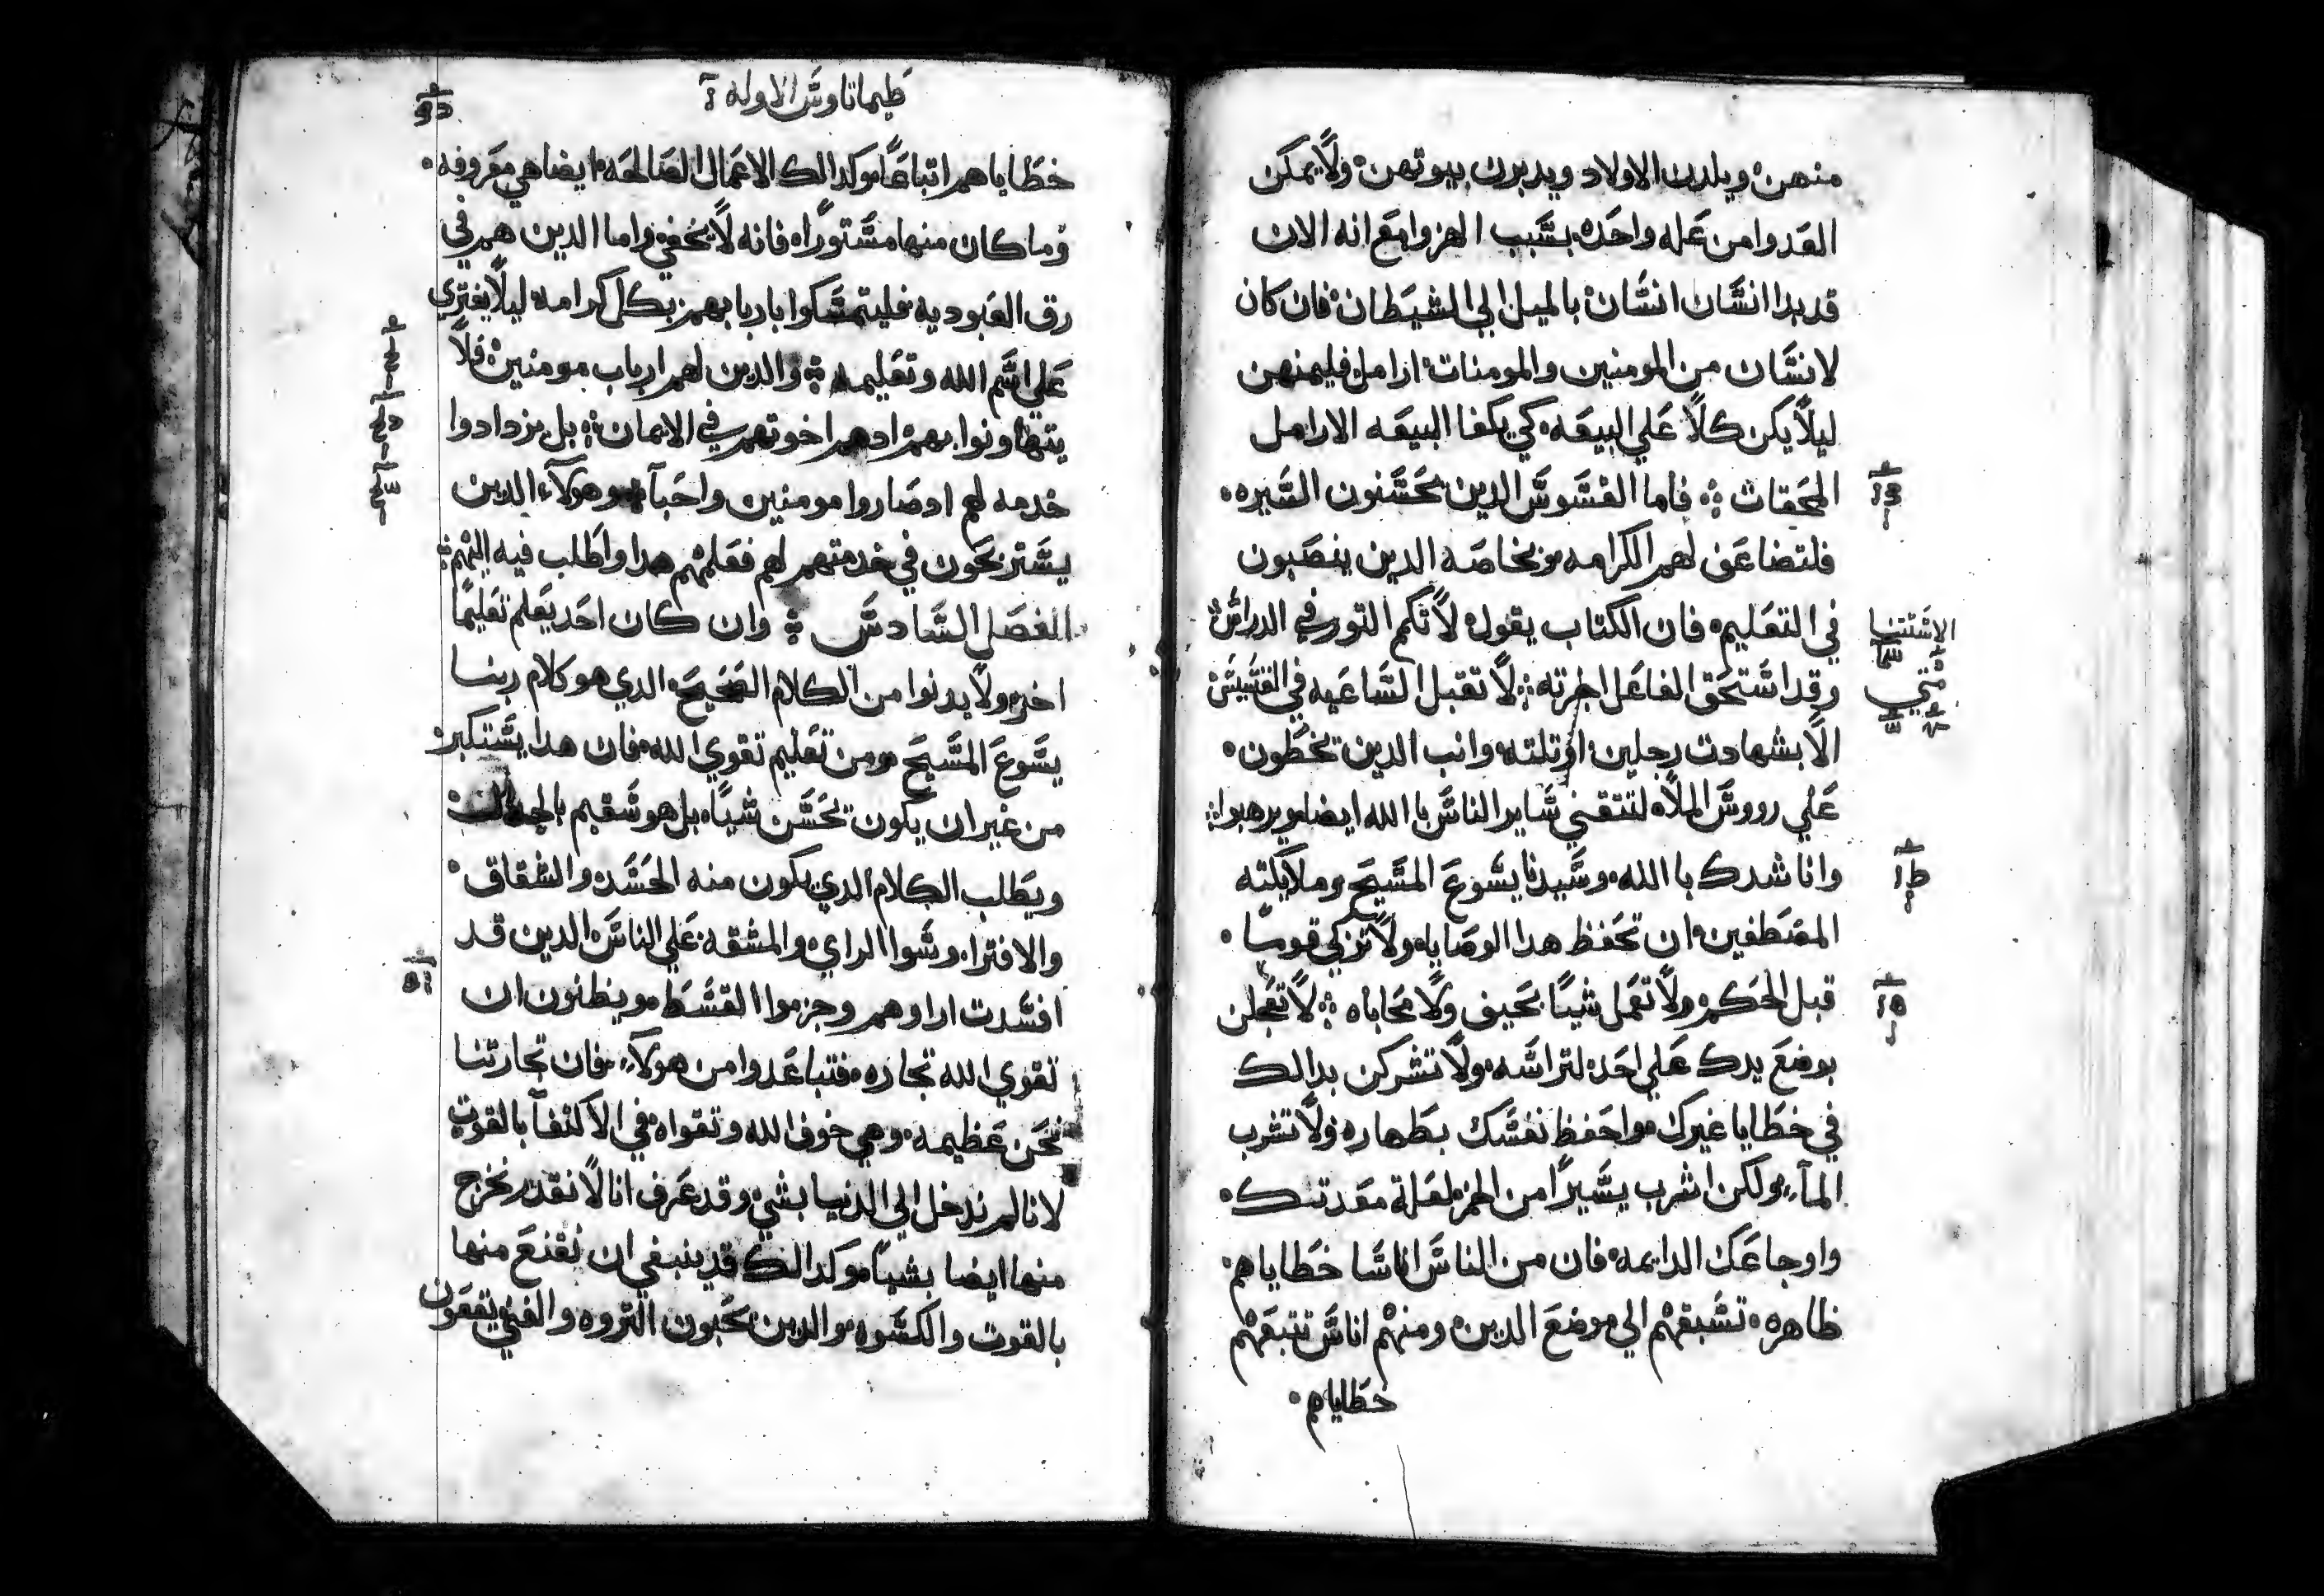 منهن ويلدن الاولاد ويدبرن بيوتهن ولا يمكن
العدوا من عله واحده بسبب الهزوا مع انه الان
قد بدا انسان انسان بالميل الي الشيطان فان كان
لانسان من المومنين والمومنات ارامل فليمنهن
ليلا يكن كلا علي البيعه كي يكفا البيعه الارامل
المحقات فاما القسوس الدين يحسنون السيره
فلتضاعف لهم الكرامه وبخاصه الدين ينصبون
في التعليم فان الكتاب يقول لا تكم التور في الدراس
وقد استحق الفاعل اجرته لا تقبل الساعيه في القسيس
الا بشهادت رجلين او تلته وانب الدين يخطون
علي رووس الملاه لتتقي ساير الناس باالله ايضا ويرهبوا
وانا شدك باالله وسيدنا يسوع المسيح وملايكته
المصطفين ان تحفظ هدا الوصايا ولا تزكي قوما
قبل الحكم ولا تعمل شيا بحيف ولا محاباه لا تعجلن
بوضع يدك علي احد لتراسه ولا تشركن بدالك
في خطايا غيرك واحفظ نفسك بطهاره ولا تشرب
المآء ولكن اشرب يسيرا من الخمر لعلة معدتك
واوجاعك الدايمه فان من الناس اناسا خطاياهم
ظاهره تسبقهم الي موضع الدين ومنهم اناس تتبعهم
خطاياهم
الاستتنا
متي
طيماتاوس الاوله
خطاياهم اتباعا وكدالك الاعمال الصالحه ايضا هي معروفه
وما كان منها مستورا فانه لا يخفي واما الدين هم في
رق العبوديه فليتمسكوا باربابهم بكل كرامه ليلا يفتري
علي اسم الله وتعليمه والدين لهم ارباب مومنين فلا
يتهاونوا بهم ادهم اخوتهم في الايمان بل يزدادوا
خدمه لهم ادصاروا مومنين واحبآ وهولآء الدين
يستريحون في خدمتهم لهم فعلمهم هدا واطلب فيه اليهم
الفصل السادس وان كان احد يعلم تعليما
اخر ولا يدنوا من الكلام الصحيح الدي هو كلام ربنا
يسوع المسيح ومن تعليم تقوي الله فان هدا يستكبر
من غير ان يكون يحسن شيا بل هو سقيم
ويطلب الكلام الدي يكون منه الحسد والشقاق
والافترا وسوا الراي والمشقه علي الناس الدين قد
افسدت اراوهم وجزموا القسط ويظنون ان
تقوي الله تجاره فتباعدوا من هولاء فان تجارتنا
نحن عظيمه وهي خوف الله وتقواه في الاكتفآ بالقوت
لانا لم ندخل الي الدنيا بشي وقد عرف انا لا نقدر نخرج
منها ايضا بشيا وكدالك قد ينبغي ان نقنع منها
بالقوت والكسوه والدين يحبون التروه والغني يقعون